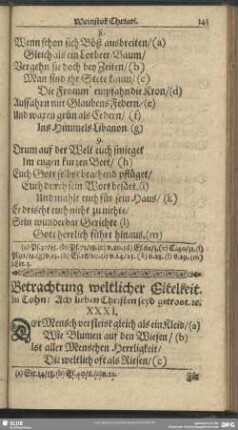 Weinstock Christi. 145
8.
Wenn schon sich Böß ausbreiten/ (a)
Gleich als ein Lorbeer Baum/
Vergehn sie doch bey Zeiten/ (b)
Man find ihr Stete kaum/ (c)
Die Fromm' empfahn die Kron/ (d)
Auffahrn mit Glaubens Federn/ (e)
Und waxen grün als Cedern/ (f)
Ins Himmels Libanon (g)
9.
Drum auf der Welt euch smieget
Im engen kurzen Bett/ (h)
Euch Gott selbst brachend pflüget/
Euch durch sein Wort besäet. (i)
Und mahlt euch für sein Haus/ (k)
Er drischt euch nicht zu nichte/
Sein wunderbar Gerichte (l)
Gott herrlich führt hinaus. (m)
Betrachtung weltlicher Eitelkeit.
im Tohn: Ach lieben Christen seyd getrost. ꝛc.
XXXI.
Der Mensch verschleist gleich als ein Kleid/ (a)
Wie Blumen auf den Wiesen/ (b)
ist aller Menschen Herrligkeit/
Die weltlich oft als Riesen/ (c)
SLUB
DRESDEN